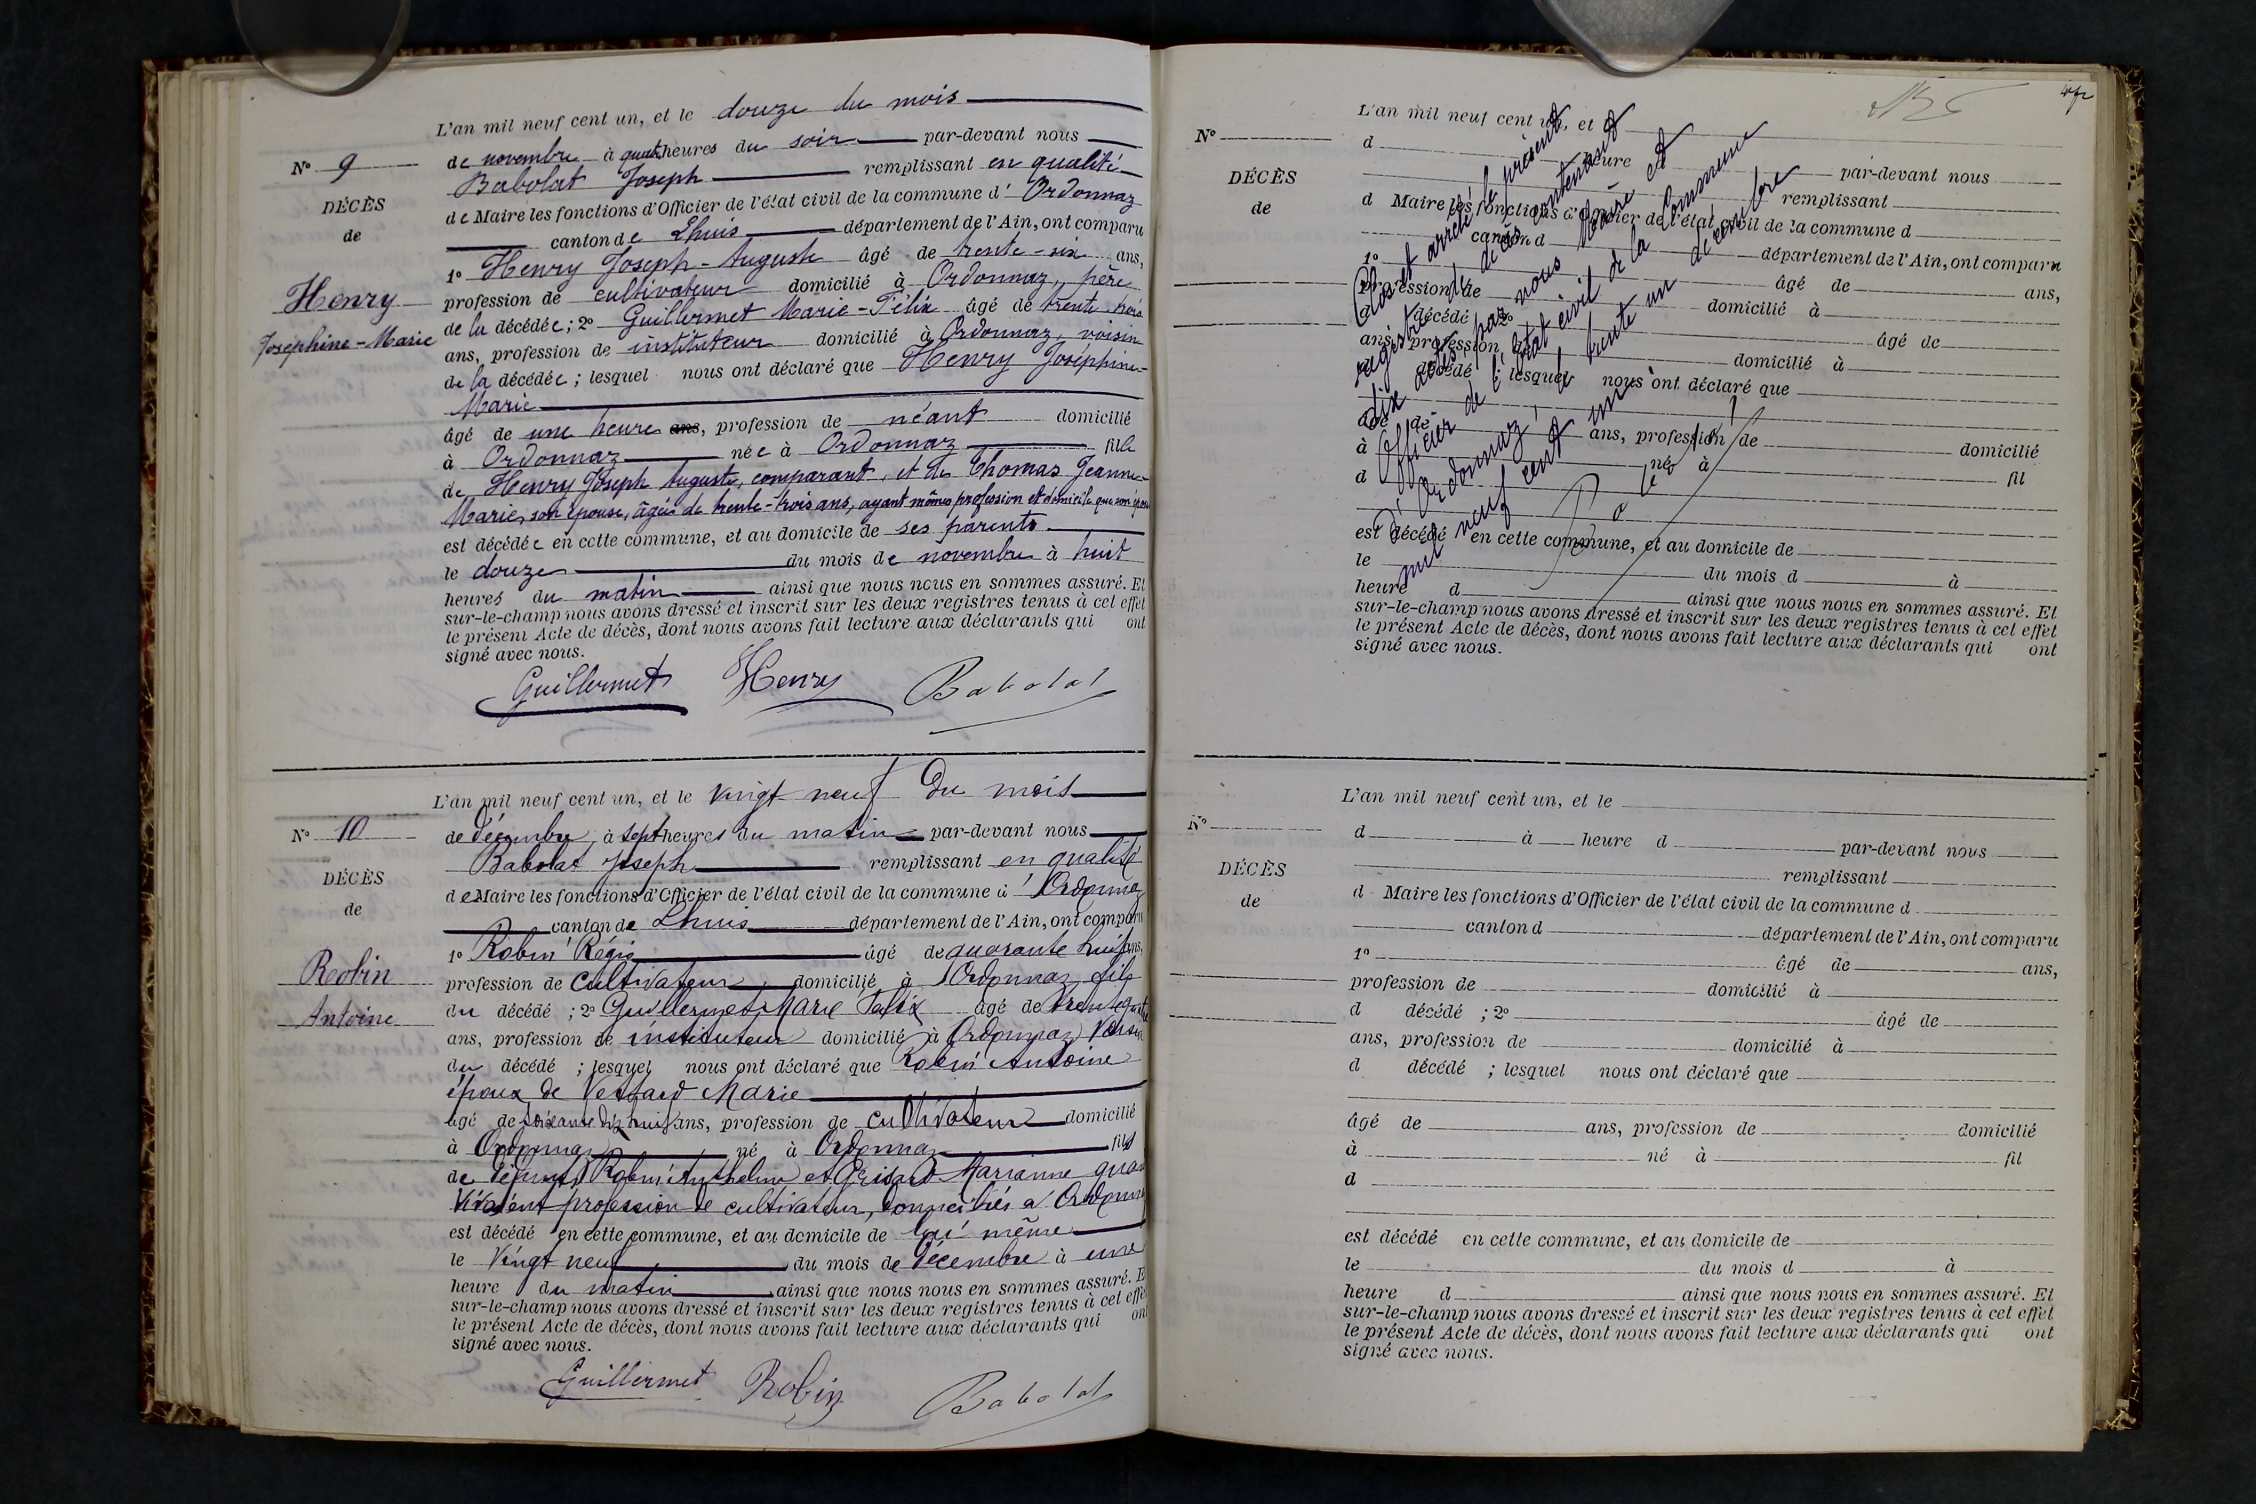 L'an mil neuf cent un, et le douze du mois
de novembre à quatre heures du soir par-devant nous
Babolat Joseph remplissant en qualité
de Maire les fonctions d'Officier de l'état civil de la commune d'Ordonnaz
canton de Lhuis département de l'Ain, ont comparu
1° Henry Joseph-Auguste âgé de trente-six ans,
profession de cultivateur domicilié à Ordonnaz, père
de la décédée ; 2° Guillermet Marie-Félix âgé de trente trois
ans, profession de instituteur domicilié à Ordonnaz, voisin
de la décédée ; lesquel nous ont déclaré que Henry Joséphine-
Marie
âgé de une heure ans, profession de néant domicilié
à Ordonnaz née à Ordonnaz fille
de Henry Joseph Auguste, comparant, et de Thomas Jeanne-
Marie, son épouse, âgée de trente-trois ans, ayant même profession et domicile que son époux
est décédée en cette commune, et au domicile de ses parents
le douze du mois de novembre à huit
heures du matin ainsi que nous nous en sommes assuré. Et
sur-le-champ nous avons dressé et inscrit sur les deux registres tenus à cet effet
le présent Acte de décès, dont nous avons fait lecture aux déclarants qui ont
signé avec nous.
Guillermet Henry Babolat
N° 9
DÉCÈS
de
Henry
Joséphine-Marie
L'an mil neuf cent un, et le vingt neuf du mois
de décembre à sept heures du matin par-devant nous
Babolat Joseph remplissant en qualité
de Maire les fonctions d'Officier de l'état civil de la commune d'Ordonnaz
canton de Lhuis département de l'Ain, ont comparu
1° Robin Régis âgé de quarante huit ans,
profession de cultivateur domicilié à Ordonnaz fils
du décédé ; 2° Guillermet Marie Félix âgé de trente quatre
ans, profession de instituteur domicilié à Ordonnaz Voisin
du décédé ; lesquel nous ont déclaré que Robin Antoine
époux de Marie
âgé de soixante dix huit ans, profession de cultivateur domicilié
à Ordonnaz né à Ordonnaz fils
de défunts Robin Anthelme et Marianne quand
vivaient profession de cultivateur, domiciliés à Ordonnaz
est décédé en cette commune, et au domicile de lui même
le Vingt neuf du mois de décembre à une
heure du matin ainsi que nous nous en sommes assuré. Et
sur-le-champ nous avons dressé et inscrit sur les deux registres tenus à cet effet
le présent Acte de décès, dont nous avons fait lecture aux déclarants qui ont
signé avec nous.
Guillermet Robin Babolat
N° 10
DÉCÈS
de
Robin
Antoine
L'an mil neuf cent un, et le
d heure par-devant nous
remplissant
d Maire les fonctions d'Officier de l'état civil de la commune d
canton d département de l'Ain, ont comparu
1° âgé de ans,
profession de domicilié à
d décédé ; 2° âgé de
ans, profession de domicilié à
d décédé ; lesquel nous ont déclaré que
âgé de ans, profession de domicilié
à né à fil
d
est décédé en cette commune, et au domicile de
le du mois d à
heure d ainsi que nous nous en sommes assuré. Et
sur-le-champ nous avons dressé et inscrit sur les deux registres tenus à cet effet
le présent Acte de décès, dont nous avons fait lecture aux déclarants qui ont
signé avec nous.
N°
DÉCÈS
de
Clos et arrêté le présent
registre de décès contenant
dix actes, par nous Maire et
Officier de l'état civil de la commune
d'Ordonnaz, le trente un décembre
mil neuf cent un
L'an mil neuf cent un, et le
d à heure d par-devant nous
remplissant
d Maire les fonctions d'Officier de l'état civil de la commune d
canton d département de l'Ain, ont comparu
1° âgé de ans,
profession de domicilié à
d décédé ; 2° âgé de
ans, profession de domicilié à
d décédé ; lesquel nous ont déclaré que
âgé de ans, profession de domicilié
à né à fil
d
est décédé en cette commune, et au domicile de
le du mois d à
heure d ainsi que nous nous en sommes assuré. Et
sur-le-champ nous avons dressé et inscrit sur les deux registres tenus à cet effet
le présent Acte de décès, dont nous avons fait lecture aux déclarants qui ont
signé avec nous.
N°
DÉCÈS
de